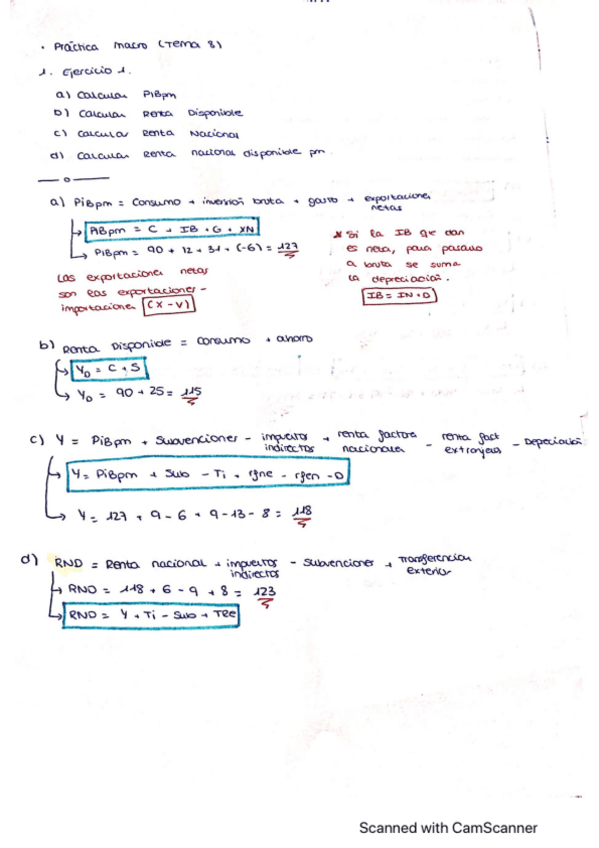 • Práctica macro (Tema 8)
1. Ejercicio 1.
a) Calcular PIBpm
b) Calcular Renta Disponible
c) Calcular Renta Nacional
d) Calcular Renta nacional disponible pm.
a) PiBpm = Consumo + inversión bruta + gasto + exportaciones netas
PIBpm = C + IB + G + XN
PiBpm = 90 + 12 + 31 + (-6) = 127
Las exportaciones netas
son las exportaciones -
importaciones (X - V)
* Si la IB que dan
es neta, para pasarlo
a bruta se suma
la depreciación.
IB = IN + D
b) Renta Disponible = Consumo + ahorro
YD = C + S
YD = 90 + 25 = 115
c) Y = PiBpm + Subvenciones - impuestos indirectos + renta factores nacionales - renta fact extranjeros - Depreciación
Y = PiBpm + Sub - Ti + rfne - rfen - D
Y = 127 + 9 - 6 + 9 - 13 - 8 = 118
d) RND = Renta nacional + impuestos indirectos - Subvenciones + Transferencias exterior
RND = 118 + 6 - 9 + 8 = 123
RND = Y + Ti - Sub + TRe
Scanned with CamScanner